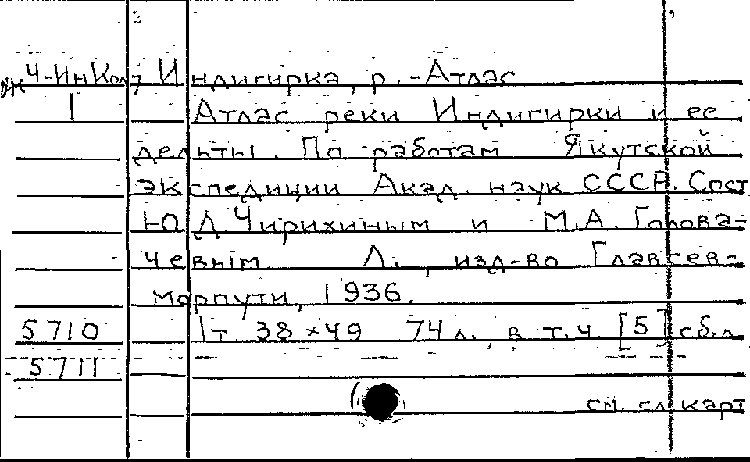 Ч-ИнКол, Индигирка, р. - Атлас
1 Атлас реки Индигирки и ее
дельты. По работам Якутской
экспедиции Акад. наук СССР. Сост
Ю.Д. Чирихиным и М.А. Горова-
чевым Л., изд-во Главсев-
морпути, 1936.
5710 1т. 38×49 74 л., в т.ч. [5] сб.л.
5711
см. сл карт